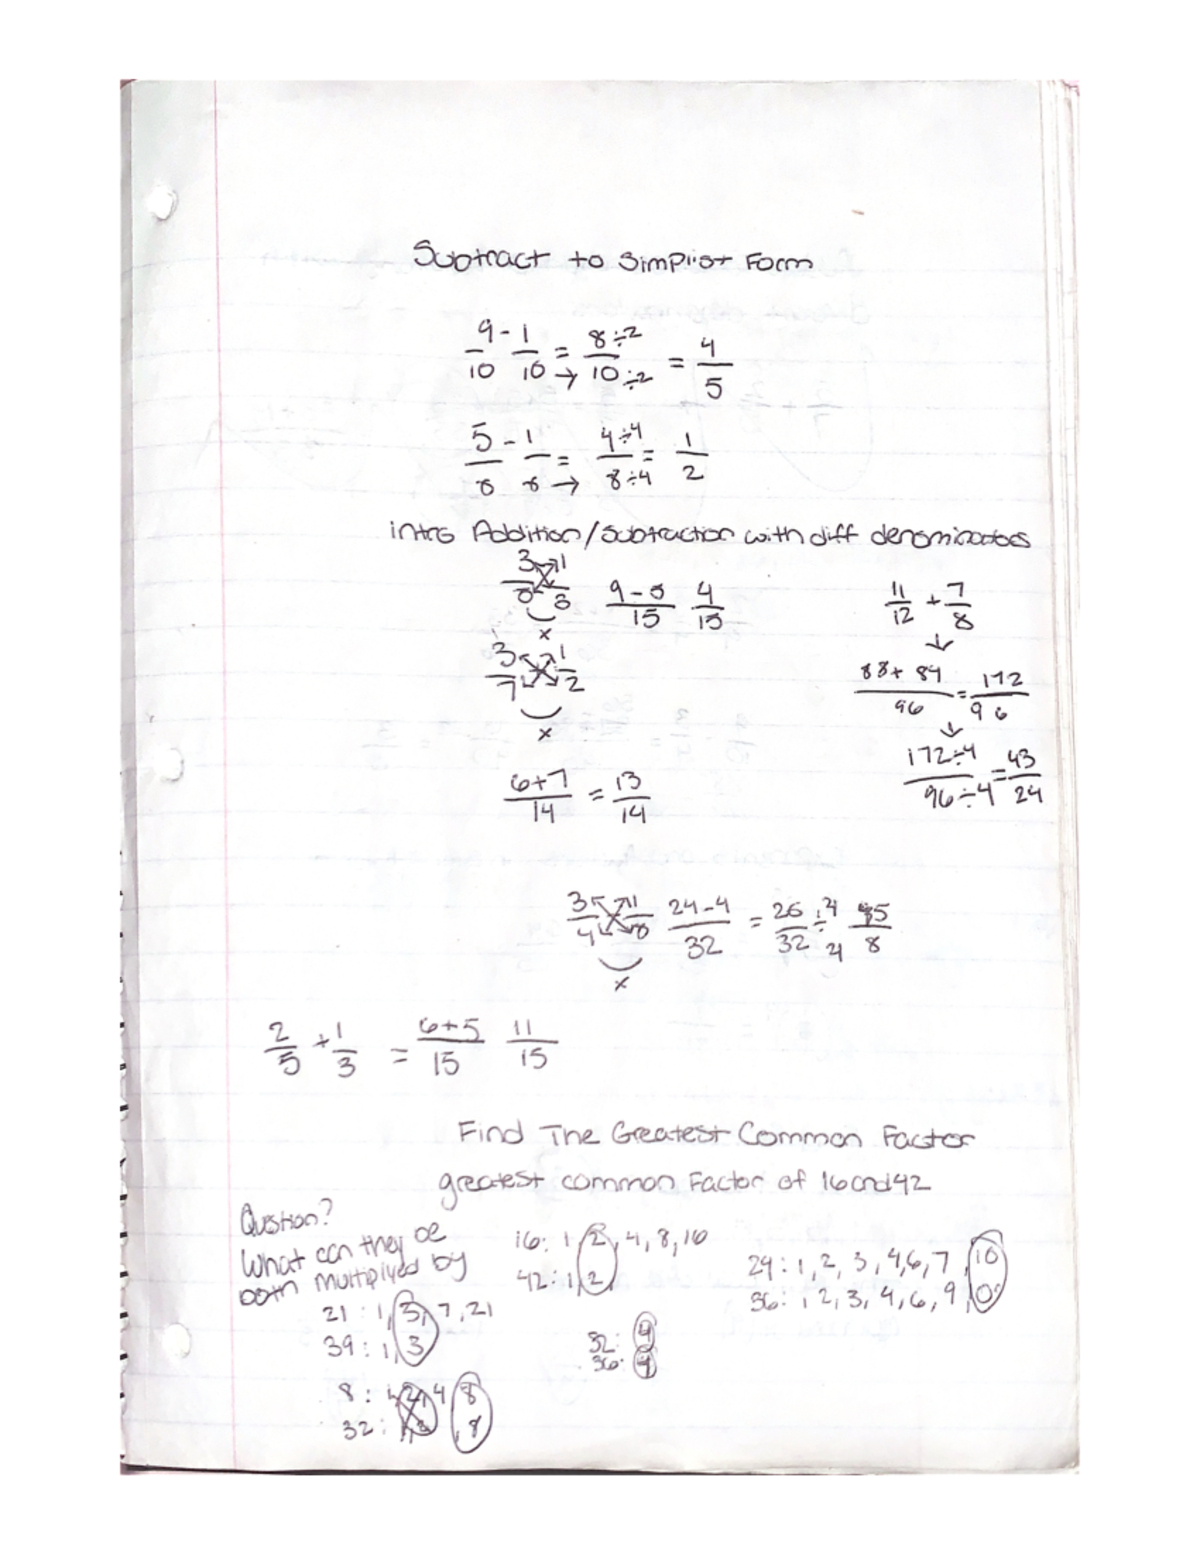 Subtract to Simplist Form
9/10 - 1/10 = → 8÷2/10÷2 = 4/5
5/8 - 1/8 = → 4÷4/8÷4 = 1/2
intro Addition/Subtraction with diff denominators
3/5 1/3 x 9-5/15 4/15
3/7 1/2 x
6+7/14 = 13/14
11/12 + 7/8
↓
88+84/96 = 172/96
↓
172÷4/96÷4 = 43/24
3/4 1/8 x 24-4/32 = 20/32 ÷ 4/4 5/8
2/5 + 1/3 = 6+5/15 11/15
Find The Greatest Common Factor
greatest common Factor of 16 and 42
Qustion?
What can they be
both multiplyed by
16: 1, 2, 4, 8, 16
42: 1, 2,
21: 1, 3, 7, 21
39: 1, 3
32: 4
36: 4
8: 1, 2, 4 8
32: , 8
24: 1, 2, 3, 4, 6, 7,
36: 1, 2, 3, 4, 6, 9,